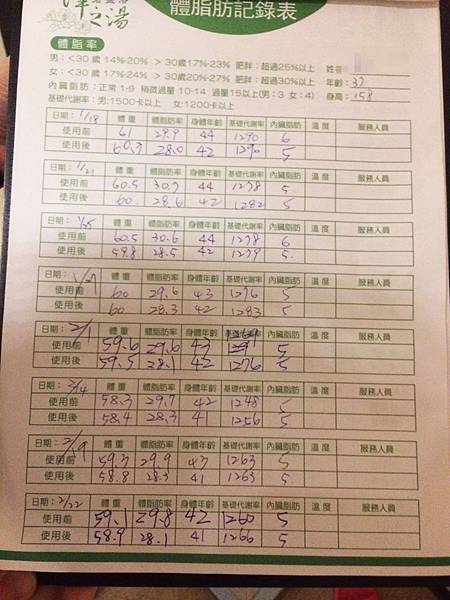 之湯
體脂肪記錄表
體脂率
男:<30歲 14%-20% >30歲17%-23% 肥胖:超過25%以上 姓名
女:<30歲 17%-24% >30歲20%-27% 肥胖:超過30%以上 年齡:37
內臟脂肪:正常1-9 稍微過量10-14 過量15以上(男:3 女:4) 身高:158
基礎代謝率:男:1500卡以上 女:1200卡以上
日期:1/18 體重 體脂肪率 身體年齡 基礎代謝率 內臟脂肪 溫度 服務人員
使用前 61 29.9 44 1290 6
使用後 60.3 28.0 42 1290 5
日期:1/21 體重 體脂肪率 身體年齡 基礎代謝率 內臟脂肪 溫度 服務人員
使用前 60.5 30.7 44 1278 5
使用後 60 28.6 42 1282 5
日期:1/25 體重 體脂肪率 身體年齡 基礎代謝率 內臟脂肪 溫度 服務人員
使用前 60.5 30.6 44 1278 6
使用後 59.8 28.5 42 1279 5
日期:1/27 體重 體脂肪率 身體年齡 基礎代謝率 內臟脂肪 溫度 服務人員
使用前 60 29.6 43 1276 5
使用後 60 28.3 42 1283 5
日期:2/1 體重 體脂肪率 身體年齡 內臟脂肪 溫度 服務人員
使用前 59.6 29.6 43 5
使用後 59.5 28.1 42 1276 5
日期:2/14 體重 體脂肪率 身體年齡 基礎代謝率 內臟脂肪 溫度 服務人員
使用前 58.3 29.7 42 1248 5
使用後 58.4 28.3 41 1256 5
日期:2/19 體重 體脂肪率 身體年齡 基礎代謝率 內臟脂肪 溫度 服務人員
使用前 59.3 29.9 43 1263 5
使用後 58.8 28.3 41 1263 5
日期:2/22 體重 體脂肪率 身體年齡 基礎代謝率 內臟脂肪 溫度 服務人員
使用前 59.1 29.8 42 1260 5
使用後 58.9 28.1 41 1266 5